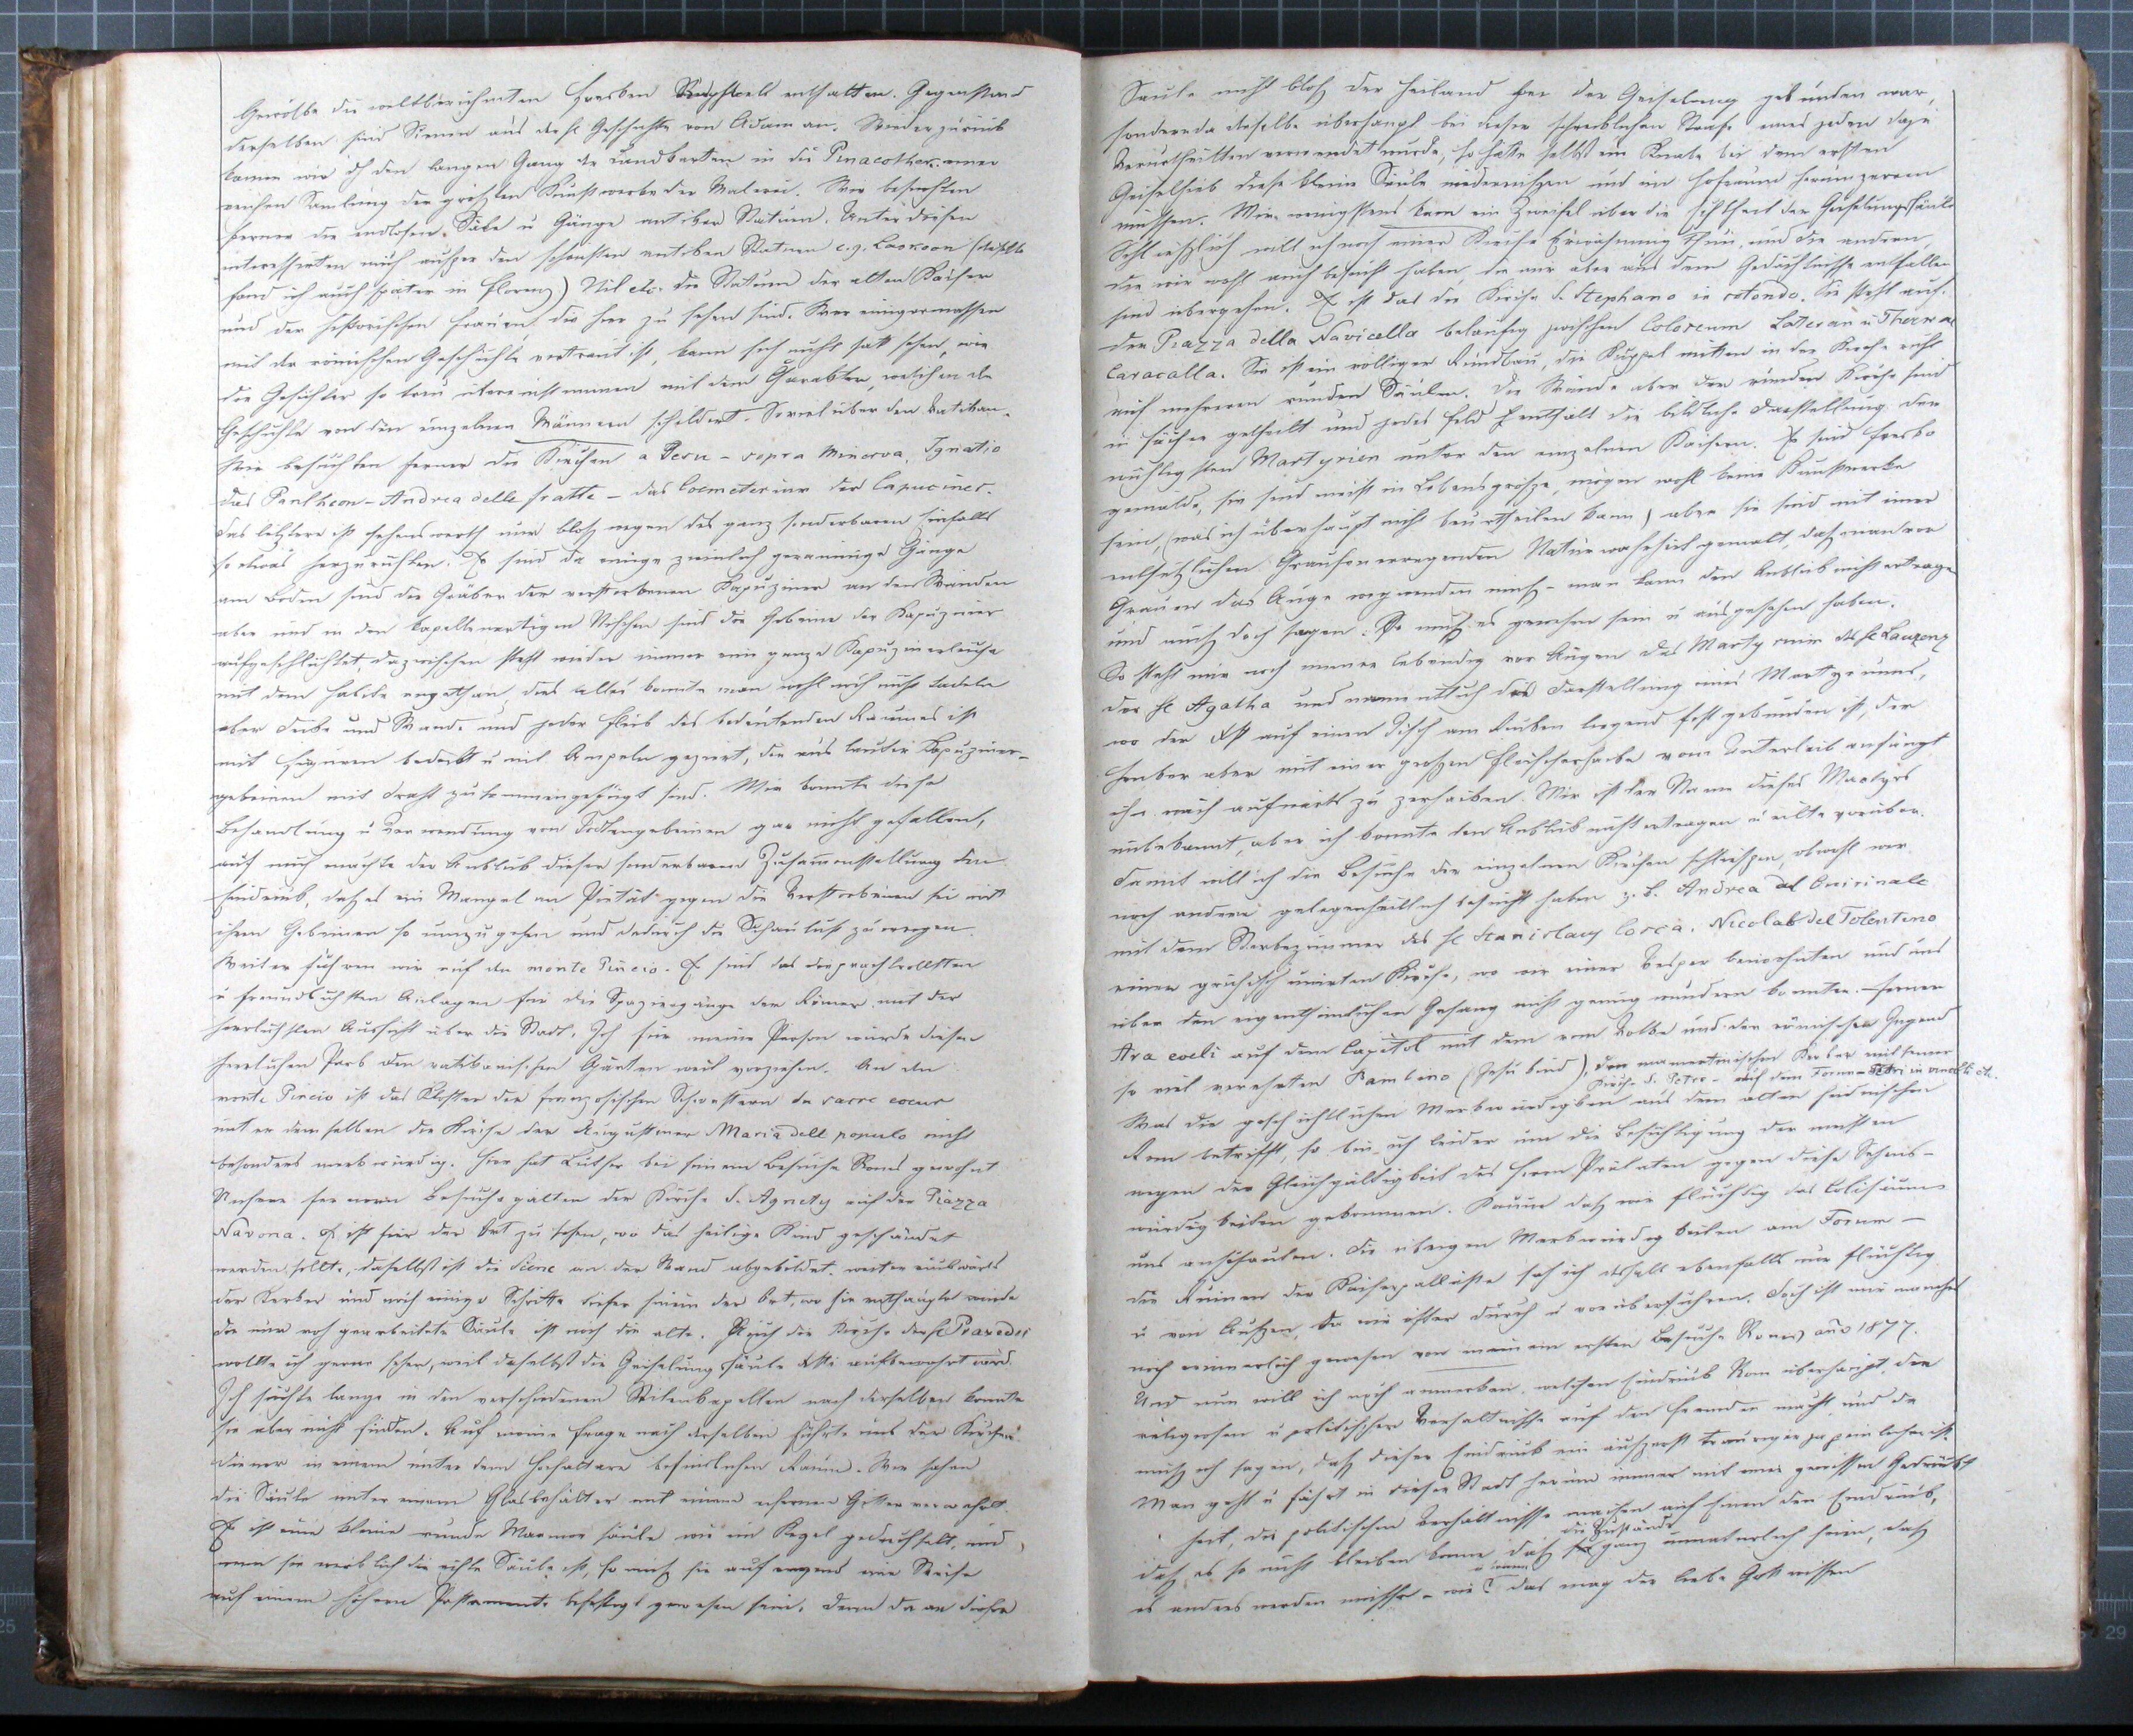 Gewölbe die weltberühmten Fresken Raphaels enthalten. Gegenstand
derselben sind Scenen aus der hl Geschichte von Adam an. Wieder zurück
kamen wir d den langen Gang der Landkarten in die Pinacothek einer
reichen Samlung der größten Kunstwerke der Malerei. Wir besuchten
ferner die endlosen Säle u Gänge antiker Statuen. Unter diesen
interessirten mich außer den schönsten antiken Statuen e.g. Laokoon (dieselbe
fand ich auch später in Florenz) Nil etc. die Statuen der alten Kaiser
und der historischen Frauen die hier zu sehen sind. Wer einigermassen
mit der römischen Geschichte vertraut ist, kann sich nicht satt sehen, wie
die Gesichter so treu übereinstimmen mit dem Charakter, welchen die
Geschichte von den einzelnen Männern schildert. Soviel über den Vatikan.
Wir besuchten ferner die Kirchen a Gesu - sopra Minerva, Ignatio
das Pantheon - Andrea delle fratte - das Coemeterium der Capuciner.
Das letztere ist sehenswerth nur bloß wegen des ganz sonderbaren Einfalls
so etwas herzurichten. Es sind da einige ziemlich geräumige Gänge
am Boden sind die Gräber der verstorbenen Kapuziner an den Wänden
aber und in den kapellenartigen Nischen sind die Gebeine der Kapuziner
aufgeschlichtet, dazwischen steht wieder immer eine ganze Kapuzinerleiche
mit dem Habite angethan, dies alles konnte man wohl noch nicht tadeln
aber Decke und Wände und jeder Fleck des bedeutenden Raumes ist
mit Figuren bedeckt u mit Ampeln geziert, die aus lauter Kapuziner-
gebeinen mit Draht zusammengefügt sind. Mir konnte diese
Behandlung u Verwendung von Todtengebeinen gar nicht gefallen,
auf mich machte der Anblick dieser sonderbaren Zusammenstellung den
Eindruck, daß es ein Mangel an Pietät gegen die Verstorbenen sei mit
ihren Gebeinen so umzugehen und dadurch die Schaulust zu erregen.
Weiter fuhren wir auf den monte Pincio. Es sind das die prachtvollsten
u freundlichsten Anlagen für die Spaziergänge der Römer mit der
herrlichsten Aussicht über die Stadt. Ich für meine Person würde diesen
herrlichen Park den vatikanischen Gärten weit vorziehen. An den
monte Pincio ist das Kloster der französischen Schwestern du sacre coeur
unter demselben die Kirche der Augustiner Maria dell populo nicht
besonders merkwürdig. Hier hat Luther bei seinem Besuche Roms gewohnt
Unsere ferneren Besuche galten der Kirche S. Agnety auf der Piazza
Navona. Es ist hier der Ort zu sehen, wo das heilige Kind geschändet
werden sollte, daselbst ist die Scene an der Wand abgebildet. weiter rückwärts
der Kerker und noch einige Schritte tiefer hinein der Ort, wo sie enthauptet wurde
die nur roh gearbeitete Säule ist noch die alte. Auch die Kirche der hl Praxedis
wollte ich gerne sehen, weil daselbst die Geiselungssäule Xti aufbewahrt wird.
Ich suchte lange in den verschiedenen Seitenkapellen nach derselben konnte
sie aber nicht finden. Auf meine Frage nach derselben führte uns der Kirchen-
diener in einen unter dem Hochaltare befindlichen Raum. Wir sahen
die Säule unter einem Glasbehälter mit einem eisernen Gitter verwahrt.
Es ist eine kleine runde Marmorsäule wie ein Kegel gedrechselt, und
wenn sie wirklich die echte Säule ist, so muß sie auf irgend eine Weise
auf einem höhern Postamente befestigt gewesen sein. Denn da an dieser
Säule nicht bloß der Heiland bei der Geiselung gebunden war,
sondern da dieselbe überhaupt bei dieser schrecklichen Strafe eines jeden dazu
Verurtheilten verwendet wurde, so hätte selbst ein Knabe bei dem ersten
Geiselhieb diese kleine Säule niederreißen und im Hofraum herumzerren
müssen. Mir wenigstens kam ein Zweifel über die Echtheit der Geiselungssäule
Schließlich will ich noch einer Kirche Erwähnung thun, und die andern,
die wir wohl auch besucht haben, die mir aber aus dem Gedächtnisse entfallen
sind übergehen. Es ist das die Kirche S. Stephano in rotondo. Sie steht auf
der Piazza della Navicella beläufig zwischen Coloseum Lateran u Thermae
Caracalla. Sie ist ein völliger Rundbau, die Kuppel mitten in der Kirche ruht
auf mehreren runden Säulen. Die Wände aber der runden Kirche sind
in Fächer getheilt und jedes Feld enthält die bildliche Darstellung der
wichtigsten Martyrien unter den einzelnen Kaisern. Es sind fresko
gemälde, sie sind meist in Lebensgröße, mögen wohl keine Kunstwerke
sein, (was ich überhaupt nicht beurtheilen kann) aber sie sind mit einer
entsetzlichen Grausen erregenden Naturwahrheit gemalt, daß man vor
Grauen das Auge wegwenden muß - man kann den Anblick nicht ertragen
und muß doch sagen: So muß es gewesen sein u ausgesehen haben.
So steht mir noch immer lebendig vor Augen das Martyrium des hl Laurenz
der hl Agatha und namentlich die Darstellung eines Martyriums,
wo der Xst auf einen Tisch am Rücken liegend fest gebunden ist, der
Henker aber mit einer großen Fleischerhacke vom Unterleib anfängt
ihn nach aufwärts zu zerhacken. Mir ist der Name dieses Martyrs
unbekannt, aber ich konnte den Anblick nicht ertragen u eilte vorüber.
Damit will ich die Besuche der einzelnen Kirchen schließen, obwohl wir
noch andere gelegenheitlich besucht haben z. B. Andrea al Quirinale
mit dem Sterbezimmer des hl Stanislaus Cosca. Nicolab del Tolentino
einer griechisch unirten Kirche, wo wir einer Vesper beiwohnten und uns
über den eigenthümlichen Gesang nicht genug wundern konnten. ferner
Ara coeli auf dem Capitol mit dem vom Volke und der römischen Jugend
so viel verehrten Bambino (Jesukind), den mamertinischen Kerker mit seiner
Kirche S. Petro - auf dem Forum - Petri in vincoli etc.
Was die geschichtlichen Merkwürdigkeiten aus dem alten heidnischen
Rom betrifft, so bin ich leider um die Besichtigung der meisten
wegen der Gleichgültigkeit des Herrn Prälaten gegen diese Sehens-
würdigkeiten gekommen. Kaum daß wir flüchtig das Colisäum
uns anschauten. Die übrigen Merkwürdigkeiten am Forum -
die Ruinen der Kaiserpalläste sah ich deshalb ebenfalls nur flüchtig
u von Außen, da wir öfter durch u vorüberfuhren. Doch ist mir manches
noch erinnerlich gewesen von meinem ersten Besuche Roms año 1877.
Und nun will ich noch anmerken, welchen Eindruck Rom überhaupt, die
religiösen u politischen Verhältnisse auf den Fremden macht und da
muß ich sagen, daß dieser Eindruck ein äußerst trauriger ja peinlicher ist.
Man geht u fährt in dieser Stadt herum immer mit einer gewissen Gedrückt
heit, die politischen Verhältnisse machen auf Einen den Eindruck,
die Zustände
daß es so nicht bleiben könne, daß ganz unnatürlich seien, daß
es anders werden müsse - wie? das mag der liebe Gott wissen